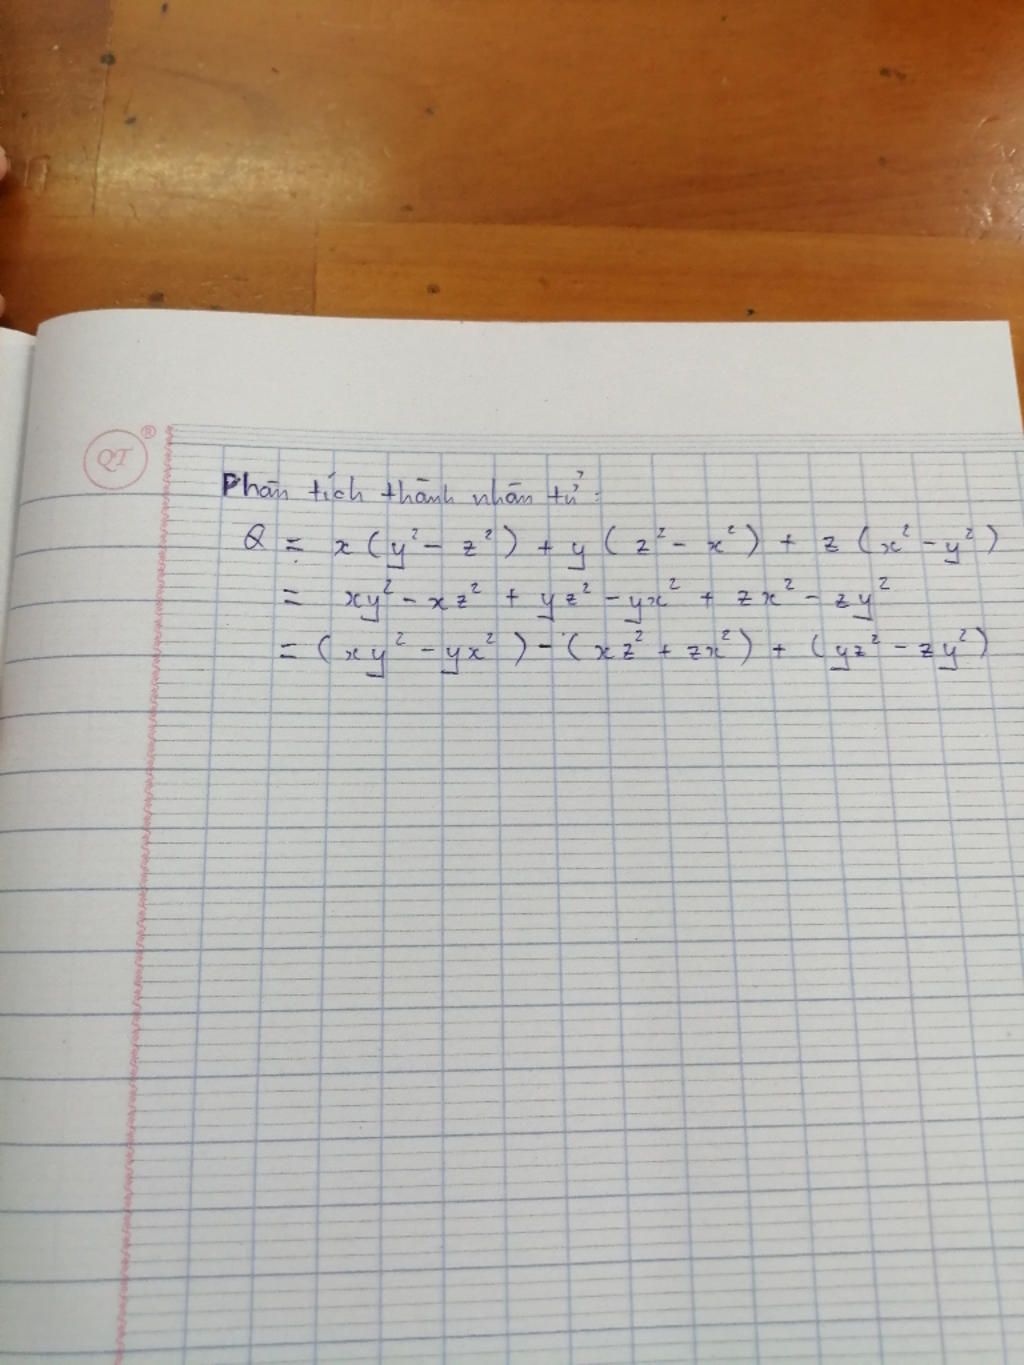 QT ®
Phân tích thành nhân tử :
Q = x(y² - z²) + y(z² - x²) + z(x² - y²)
= xy² - xz² + yz² - yx² + zx² - zy²
= (xy² - yx²) - (xz² + zx²) + (yz² - zy²)